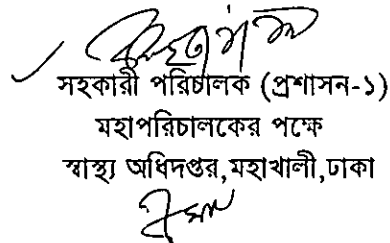 সহকারী পরিচালক (প্রশাসন-১)
মহাপরিচালকের পক্ষে
স্বাস্থ্য অধিদপ্তর,মহাখালী,ঢাকা